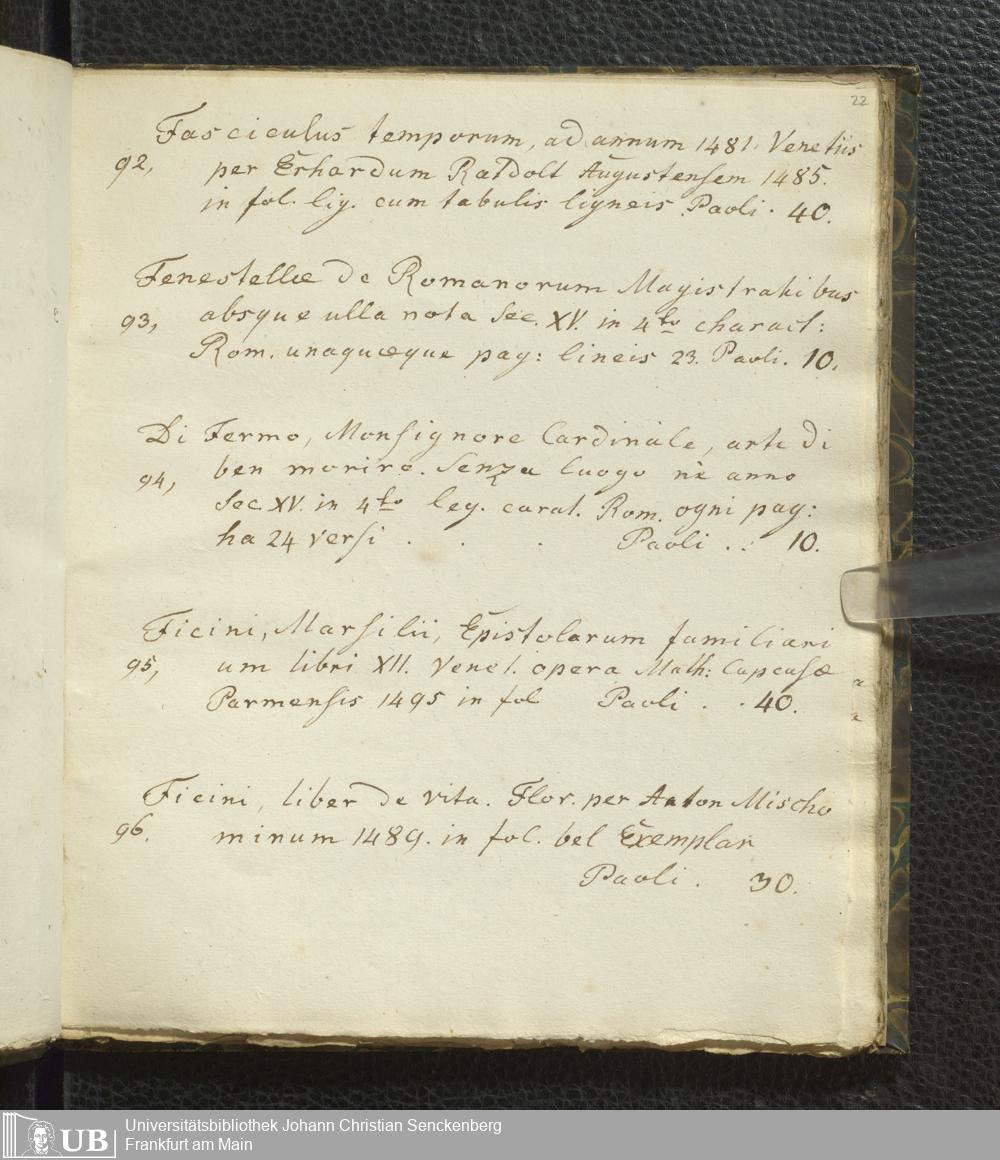 22
Fasciculus temporum, ad annum 1481. Venetiis
92, per Erhardum Ratdolt Augustensem 1485.
in fol. lig. cum tabulis ligneis. Paoli. 40.
Fenestellæ de Romanorum Magistratibus
93, absque ulla nota Sec. XV. in 4to charact:
Rom. unaquæque pag: lineis 23. Paoli. 10.
Di Fermo, Monsignore Cardinale, arte di
94, ben morire. Senza luogo nè anno
Sec. XV. in 4to leg. carat. Rom. ogni pag:
ha 24 versi . . . Paoli . . 10.
Ficini, Marsilii, Epistolarum familiari
95, um libri XII. Venet. opera Math: Capcasæ
Parmensis 1495 in fol Paoli . . 40.
Ficini, liber de vita. Flor. per Anton Mischo
96. minum 1489. in fol. bel Exemplar
Paoli . 30.
UB
Universitätsbibliothek Johann Christian Senckenberg
Frankfurt am Main